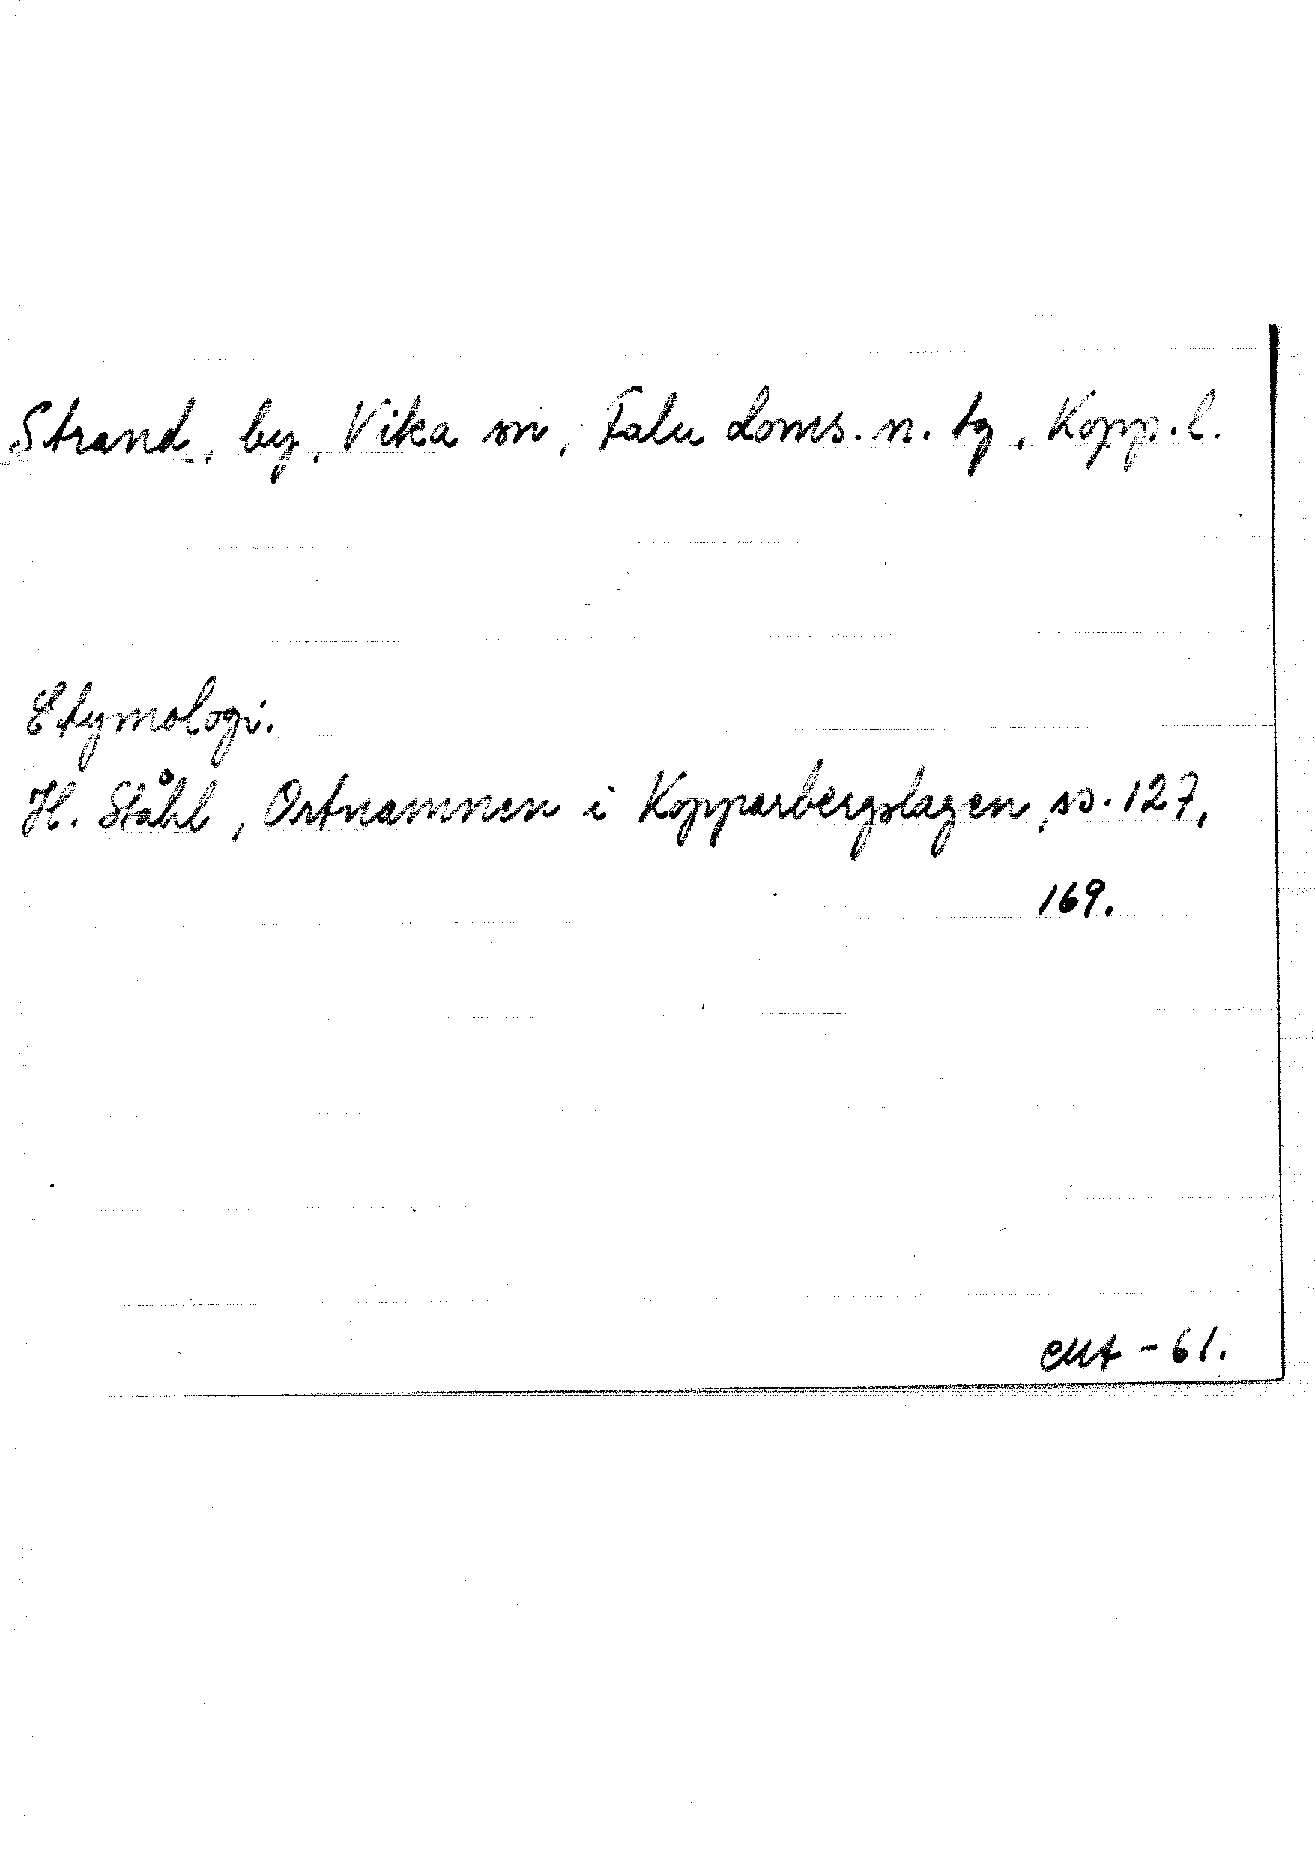 Strand, by, Vika sn, Falu doms. n. tg, Kopp. l.
Etymologi.
H. Ståhl, Ortnamnen i Kopparbergslagen, ss. 127,
169.
-61.